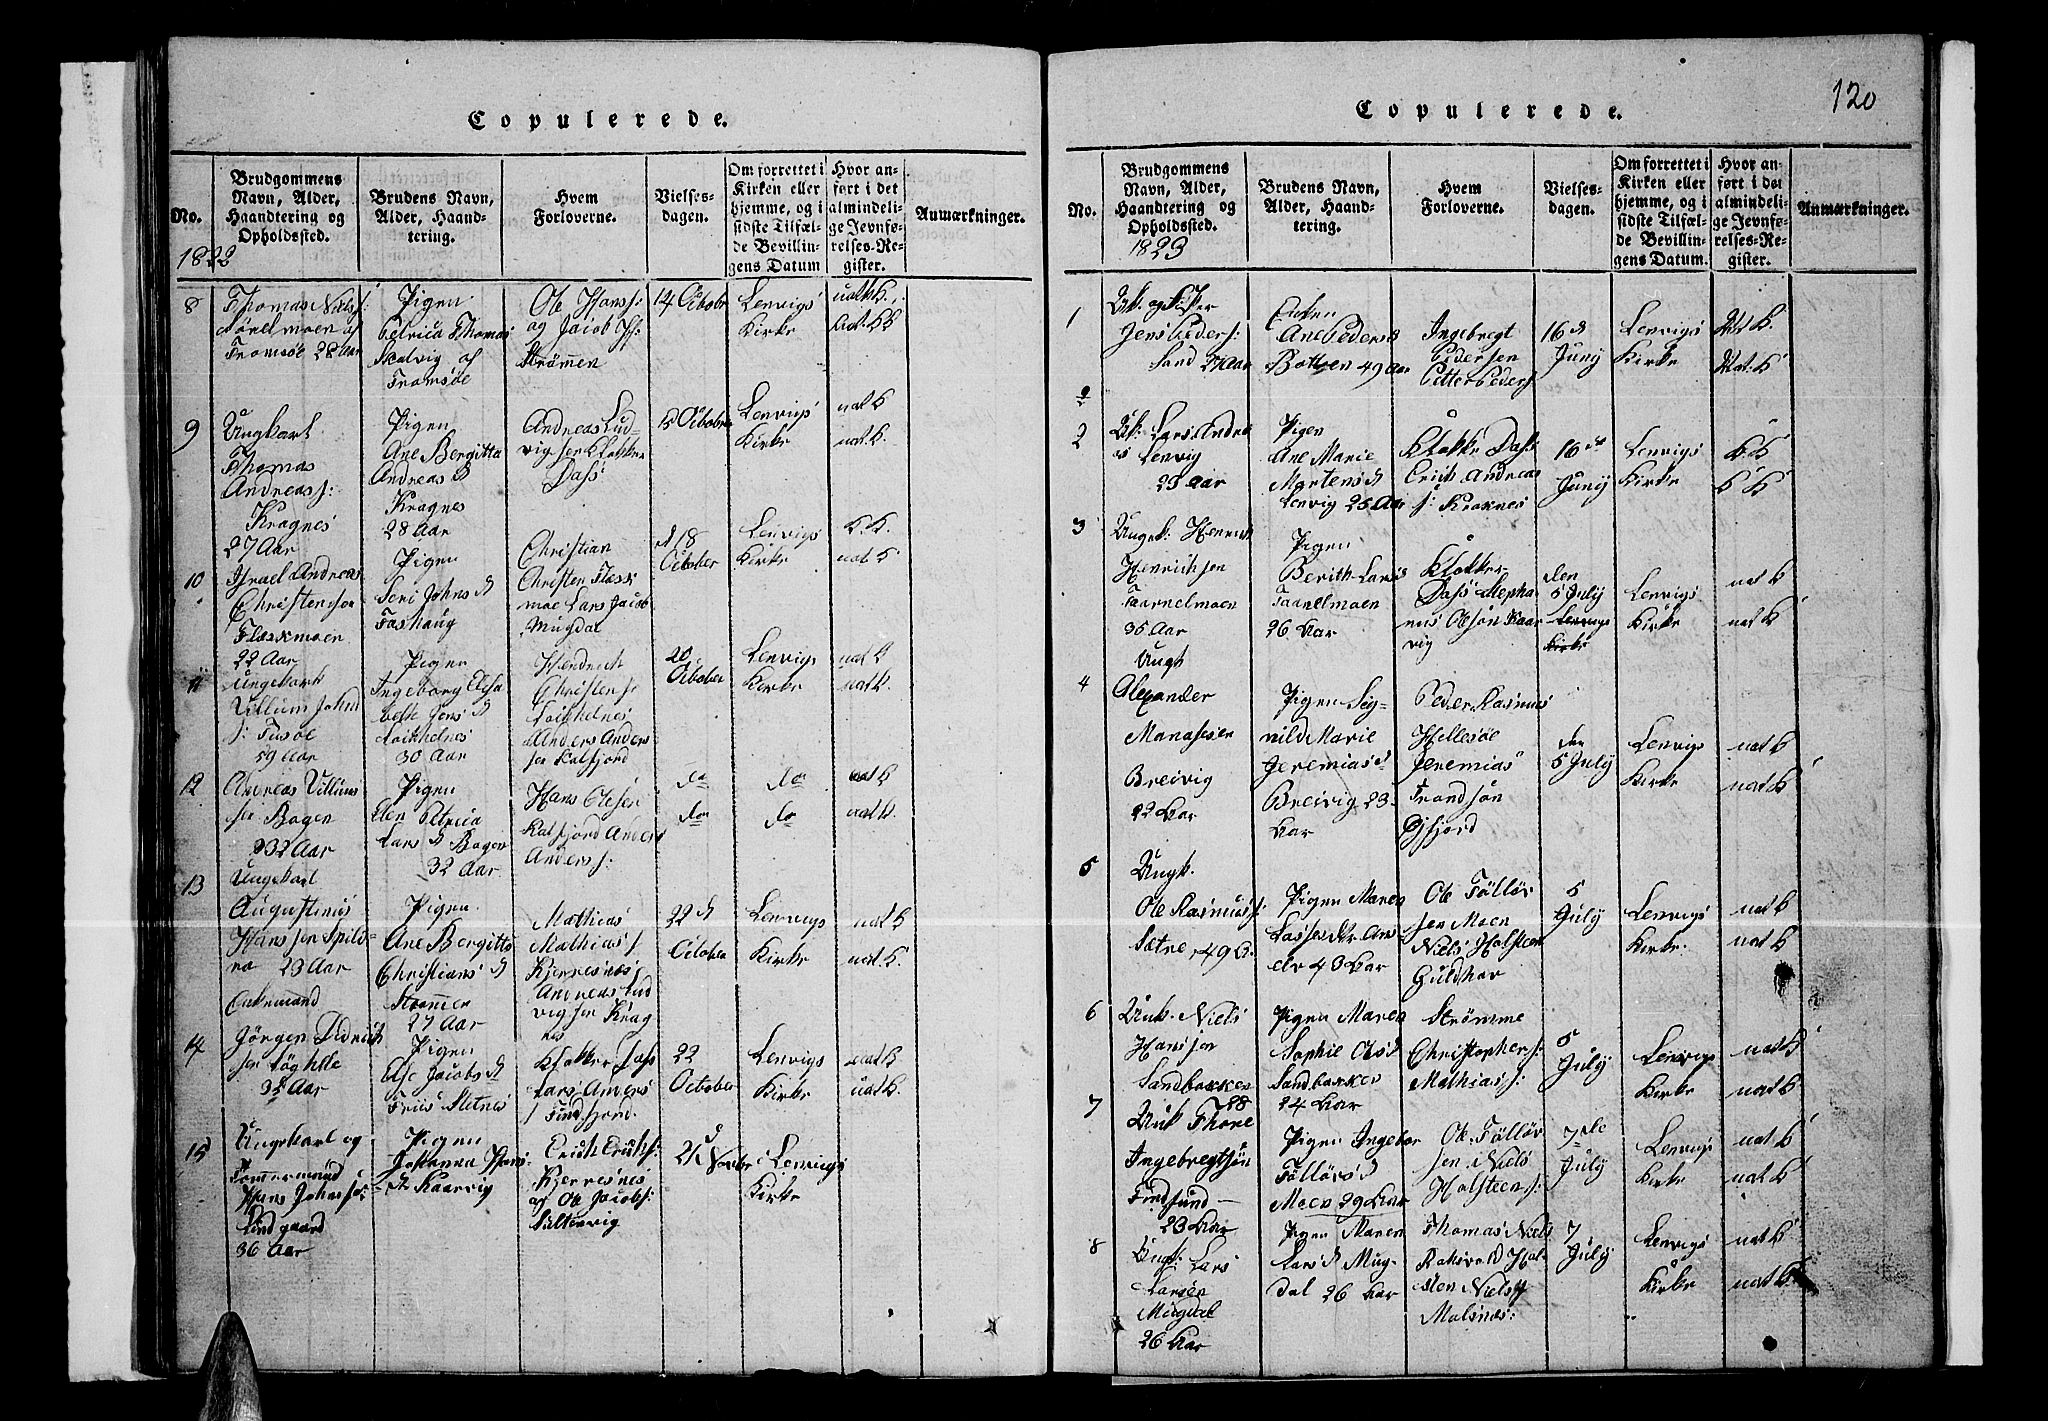 Copulerede.
No.
Brudgommens
Navn, Alder,
Haandtering og
Opholdssted.
Brudens Navn,
Alder, Haand-
tering.
Hvem
Forloverne.
Vielses-
dagen.
Om forrettet i
Kirken eller
hjemme, og i
sidste Tilfæl-
de Bevillin-
gens Datum
Hvor an-
ført i det
almindeli-
ge Jevnfø-
relses-Re-
gister.
Anmærkninger.
1822
8
Thomas Niels:
af
Tromsøe 28 Aar
Pigen
Petrica Thomas
af
Tromsøe
Ole Hans:
og Jacob
Strømen
14 Octobr
Lenvigs
Kirke
9
Ungkarl
Thomas
Andreas:
Kragnes
27 Aar
Pigen
Ane Bergitta
Andreas D
Kragnes
28 Aar
Andreas Lud-
vigsen Klokker
Dass
15 Octobr
Lenvigs
Kirke
uat K
uat K.
10
Israel Andreas
Christensen
Flæskmoen
22 Aar
Pigen
Seri Johns D
Foshaug
Christian
Christen Flæsk
moe Lars Jacob
Mugdal
d 18
October
Lenvigs
Kirke
K. K.
uat K
11
Ungekarl
Villum John
s: Tusøe
59 Aar
Pigen
Ingeborg Elisa
beth Jens D
30 Aar
Hendrich
Christens:
Anders Anders
sen Kalfjord
20
October
Lenvigs
Kirke
uat K
uat K.
12
Andreas Villums
sen Bogen
32 Aar
Pigen
Elen Petricia
Lars D Bogen
32 Aar
Hans Olesen
Kalfjord Anders
Anders s:
do
do
do
do
uat K
uat K.
13
Ungekarl
Augustinus
Hans sen Spild-
na 23 Aar
Pigen
Ane Bergitte
Christians D
Strømen
27 Aar
Mathias
Mathias s
Kjerresnes
Andreas Lud
vigsen Krag
nes
22 d
October
Lenvigs
Kirke
uat K
uat. K.
14
Enkemand
Jørgen Didrich
sen
35 Aar
Pigen
Else Jacobs D
Friis Sletnes
Klokker Dass
Lars Anders
s Findfjord
22
October
Lenvigs
Kirke
uat K
uat K.
15
Ungekarl og
Tømermand
Hans Johanse
Lindgaard
36 Aar
Pigen
Johanna Hans
D Kaarvig
Erich Erichs:
Kjerresnes
og Ole Jacobs:
Sultenvig
21 Novbr
Lenvigs
Kirke
Copulerede.
120
No.
Brudgommens
Navn, Alder,
Haandtering og
Opholdssted.
Brudens Navn,
Alder, Haand-
tering.
Hvem
Forloverne.
Vielses-
dagen.
Om forrettet i
Kirken eller
hjemme, og i
sidste Tilfæl-
de Bevillin-
gens Datum.
Hvor an-
ført i det
almindeli-
ge Jevnfø-
relses-Re-
gister.
Anmærkninger.
1823
1
Uk. og Fisker
Jens Peders:
Sand 27 Aar
Enken
Ane Peders
Botten 49 Aar
Ingebregt
Pedersen
Petter Peders:
16 d
Juny
Lenvigs
Kirke
Uat K.
Uat. K
2
Uk: Lars Andre
as Lenvig
23 Aar
Pigen
Ane Marie
Martens D
Lenvig 25 Aar
Klokker Dass
Erich Andreas
s: Kraknes
16 de
Juny
Lenvigs
Kirke
K K
K K
3
Ungk: Henrich
Henrichsen
Taarnelmoen
35 Aar
Pigen
Berith Lars
Taarnelmoen
26 Aar
Klokker
Dass Stepha
nus Olsøn Kaar
vig
den
5 July
Lenvigs
Kirke
Lenvigs
Kirke
uat K
uat K
4
Ungk
Alexander
Manassesen
Breivig
22 Aar
Pigen Sig-
nild Marie
Jeremias D
Breivig 23
Aar
Peder Rasmus
Hellesøe
Jeremias
Trondsøn
Ejfjord
den
5 July
Lenvigs
Kirke
uat K
uat K
5
Ungk.
Ole Rasmuss:
Sætre 49 A.
Pigen Maren
43 Aar
Ole Tølløv
sen Moen
Niels Holsteen
Guldhav
5
July
Lenvigs
Kirke.
uat K
uat K
6
Unk. Niels
Hansen
Sandbakken
28
Pigen Maren
Sophie Ols D
Sandbakken
24 Aar
Strømme
Christophers:
Mathias s:
5
July
Lenvigs
Kirke
uat K
uat K
7
Unk Thore
Ingebregtsøn
Findsund
23 Aar
Pigen Ingebor
Tølløvs D
Moen 29 Aar
Ole Tølløv
sen Niels
Holsteens:
7 de
July
Lenvigs
Kirke
uat K
uat K
8
Ungk: Lars
Larsen
Mugdal
26 Aar
Pigen Maren
Lars D Mug-
dal 26 Aar
Thomas Niels
Rakvold Hol-
sten Niels
Malsnæs:
7
July
Lenvigs
Kirke
uat K
uat K